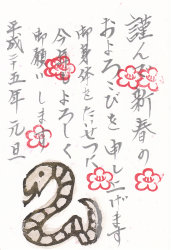 謹んで新春の
およろこびを申し上げます
御身体をたいせつに
今年もよろしく
御願いします
平成二十五年 元旦